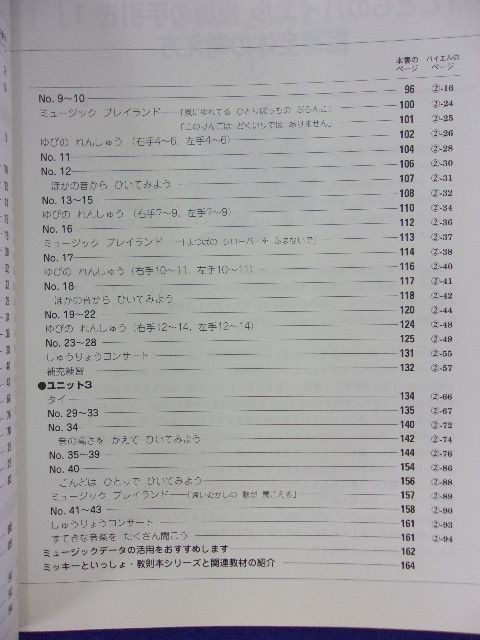 本書の
ページ
バイエルの
ページ
No. 9～10 96 ②-16
ミュージック プレイランド 「風にゆれてる ひとりぼっちの ぶらんこ」 100 ②-24
「このりんごは どくいりでは ありません」 101 ②-25
ゆびの れんしゅう（右手4～6、左手4～6） 102 ②-26
No. 11 104 ②-28
No. 12 106 ②-30
ほかの音から ひいてみよう 107 ②-31
No. 13～15 108 ②-32
ゆびの れんしゅう（右手7～9、左手7～9） 110 ②-34
No. 16 112 ②-36
ミュージック プレイランド 「よつばの クローバーを ふまないで」 113 ②-37
No. 17 114 ②-38
ゆびの れんしゅう（右手10～11、左手10～11） 116 ②-40
No. 18 117 ②-41
ほかの音から ひいてみよう 118 ②-42
No. 19～22 120 ②-44
ゆびの れんしゅう（右手12～14、左手12～14） 124 ②-48
No. 23～28 125 ②-49
しゅうりょうコンサート 131 ②-55
補充練習 132 ②-57
●ユニット3
タイ 134 ②-66
No. 29～33 135 ②-67
No. 34 140 ②-72
音の高さを かえて ひいてみよう 142 ②-74
No. 35～39 144 ②-76
No. 40 154 ②-86
こんどは ひとりで ひいてみよう 156 ②-88
ミュージック プレイランド 「遠いむかしの 歌が 聞こえる」 157 ②-89
No. 41～43 158 ②-90
しゅうりょうコンサート 161 ②-93
すてきな音楽を たくさん聞こう 161 ②-94
ミュージックデータの活用をおすすめします 162
ミッキーといっしょ・教則本シリーズと関連教材の紹介 164